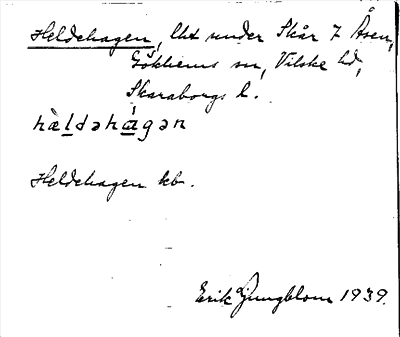 Heldehagen, lht under Skår 7 Åsen,
Gökhems sn, Vilske hd,
Skaraborgs l.
hæ̀ldəhágən
Heldehagen kb.
Erik Ljungblom 1939.